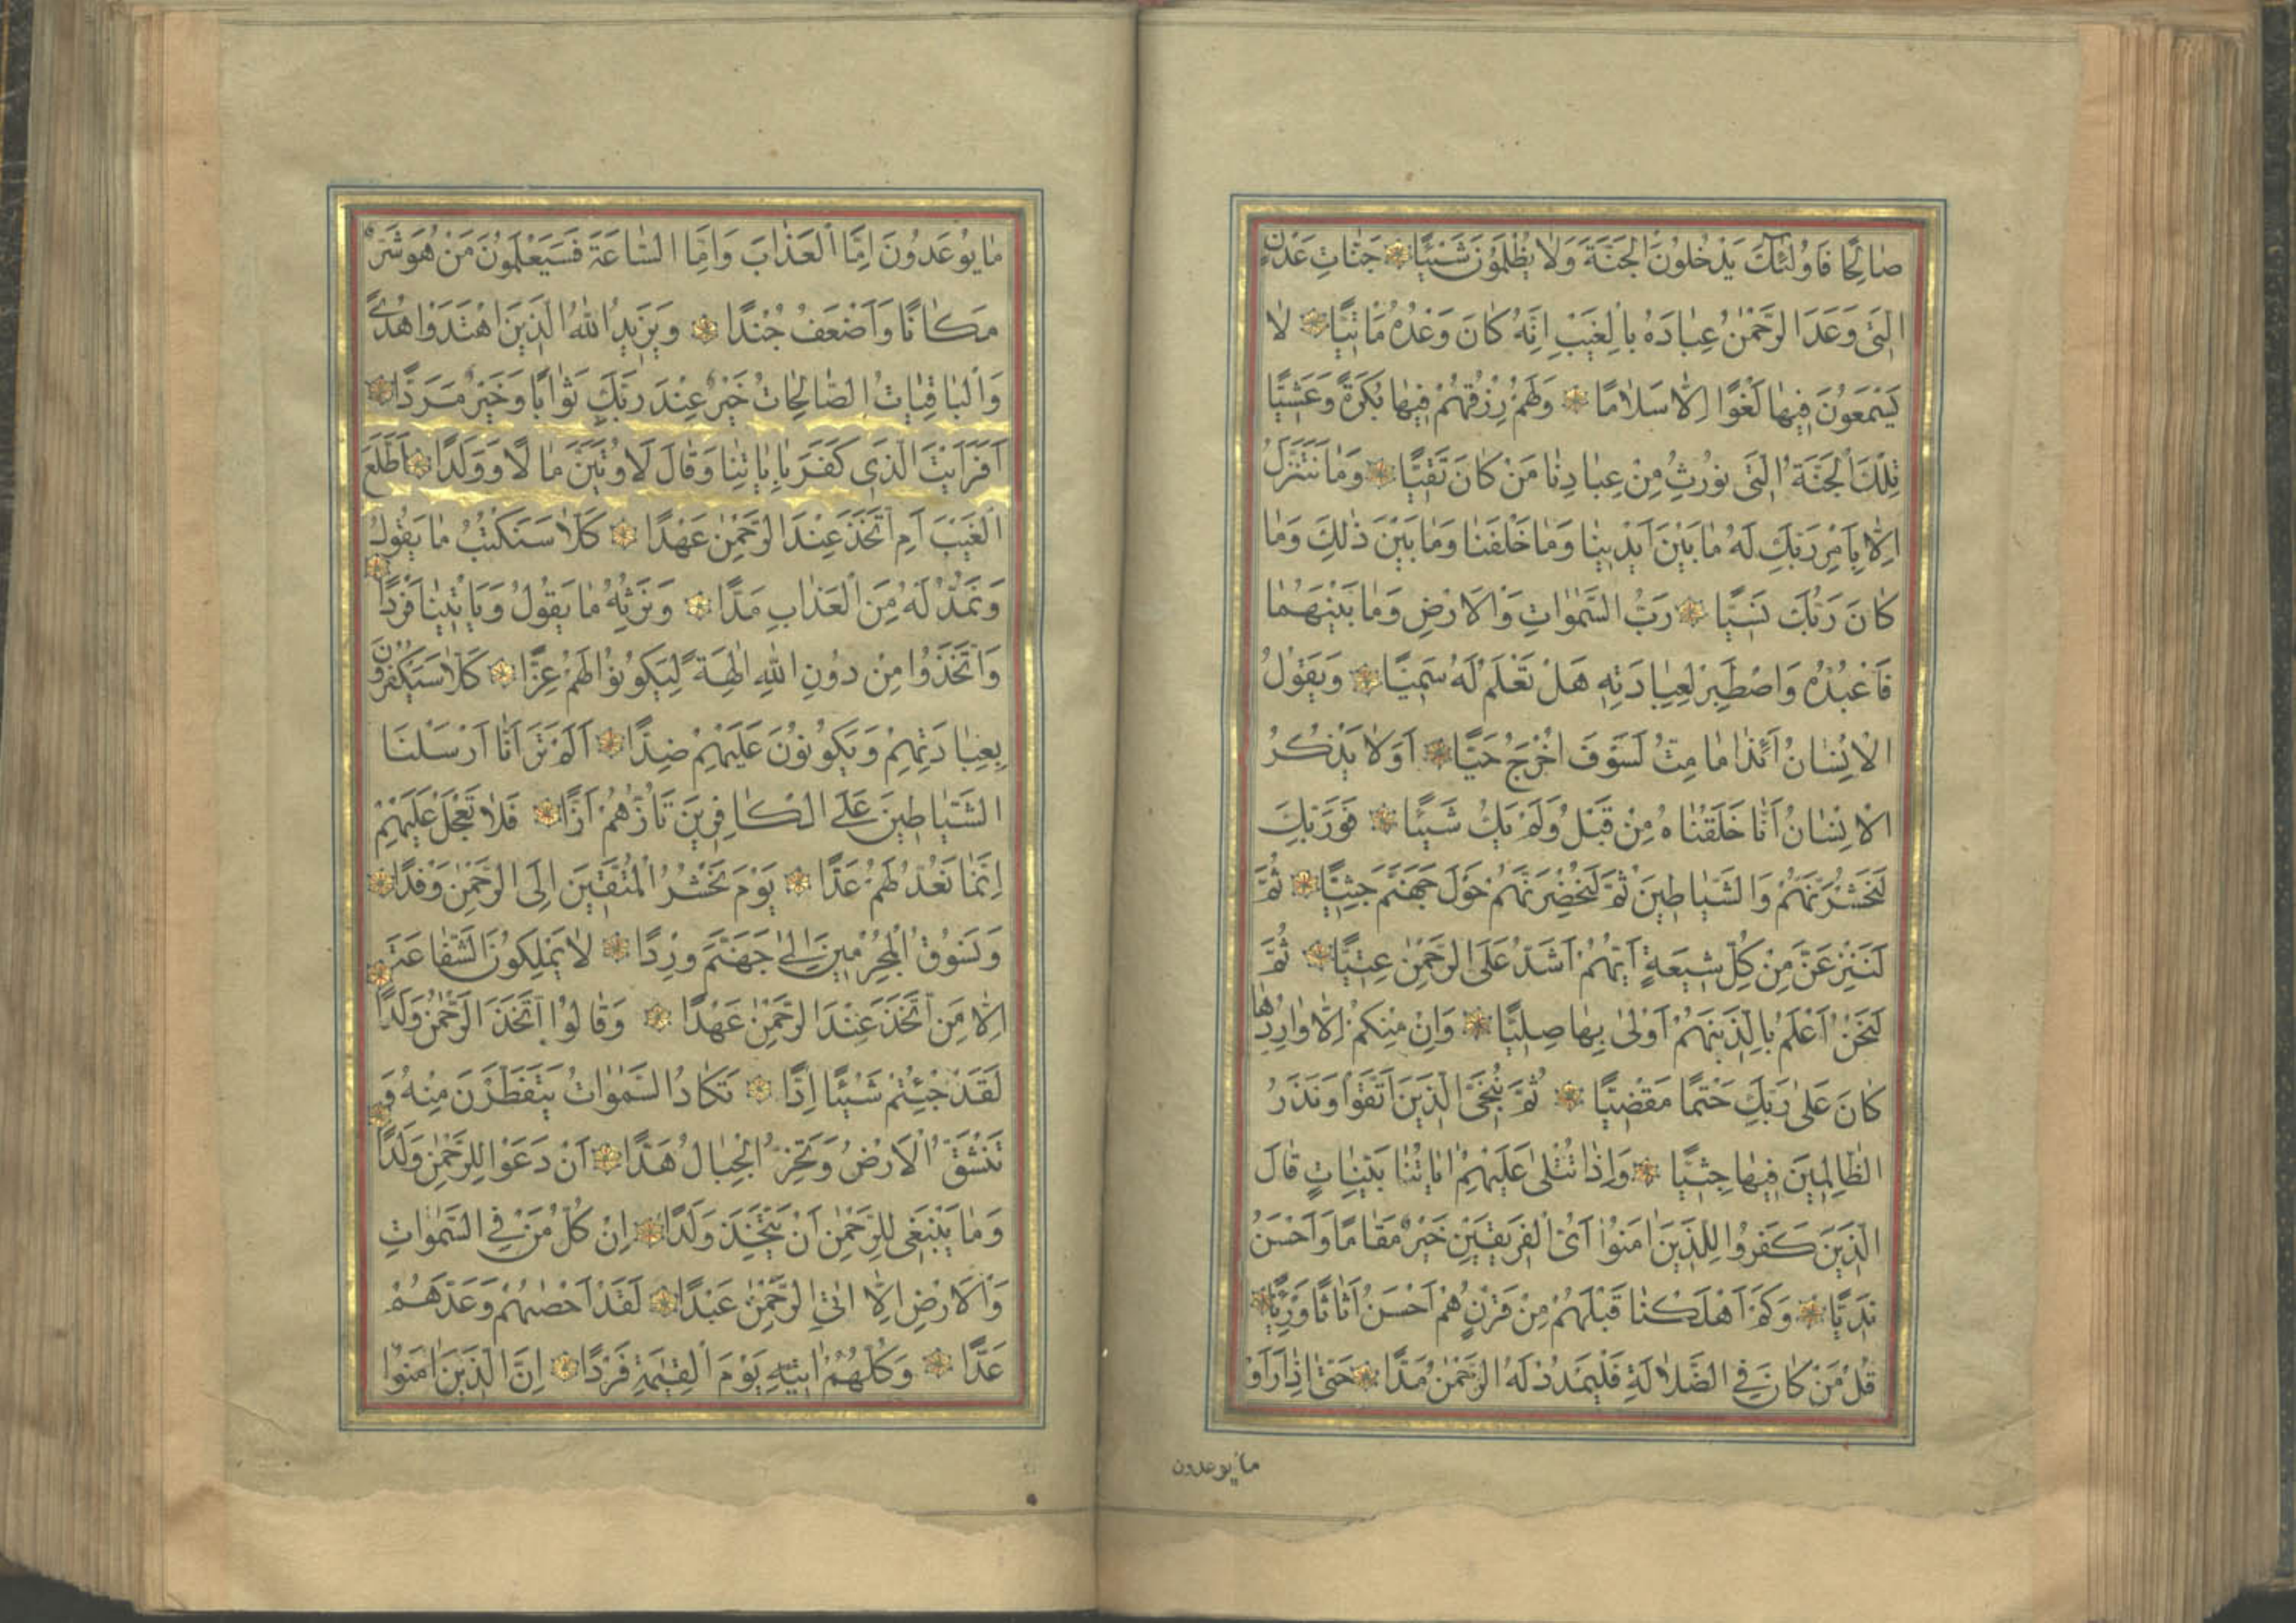 صَالِحًا فَاُولٰئِكَ يَدْخُلُونَ الْجَنَّةَ وَلَا يُظْلَمُونَ شَيْئًا جَنَّاتِ عَدْنٍ
الَّتِي وَعَدَ الرَّحْمٰنُ عِبَادَهُ بِالْغَيْبِ اِنَّهُ كَانَ وَعْدُهُ مَاْتِيًّا لَا
يَسْمَعُونَ فِيهَا لَغْوًا اِلَّا سَلَامًا وَلَهُمْ رِزْقُهُمْ فِيهَا بُكْرَةً وَعَشِيًّا
تِلْكَ الْجَنَّةُ الَّتِي نُورِثُ مِنْ عِبَادِنَا مَنْ كَانَ تَقِيًّا وَمَا نَتَنَزَّلُ
اِلَّا بِاَمْرِ رَبِّكَ لَهُ مَا بَيْنَ اَيْدِينَا وَمَا خَلْفَنَا وَمَا بَيْنَ ذٰلِكَ وَمَا
كَانَ رَبُّكَ نَسِيًّا رَبُّ السَّمٰوَاتِ وَالْاَرْضِ وَمَا بَيْنَهُمَا
فَاعْبُدْهُ وَاصْطَبِرْ لِعِبَادَتِهِ هَلْ تَعْلَمُ لَهُ سَمِيًّا وَيَقُولُ
الْاِنْسَانُ اَئِذَا مَا مِتُّ لَسَوْفَ اُخْرَجُ حَيًّا اَوَلَا يَذْكُرُ
الْاِنْسَانُ اَنَّا خَلَقْنَاهُ مِنْ قَبْلُ وَلَمْ يَكُ شَيْئًا فَوَرَبِّكَ
لَنَحْشُرَنَّهُمْ وَالشَّيَاطِينَ ثُمَّ لَنُحْضِرَنَّهُمْ حَوْلَ جَهَنَّمَ جِثِيًّا ثُمَّ
لَنَنْزِعَنَّ مِنْ كُلِّ شِيعَةٍ اَيُّهُمْ اَشَدُّ عَلَى الرَّحْمٰنِ عِتِيًّا ثُمَّ
لَنَحْنُ اَعْلَمُ بِالَّذِينَ هُمْ اَوْلٰى بِهَا صِلِيًّا وَاِنْ مِنْكُمْ اِلَّا وَارِدُهَا
كَانَ عَلٰى رَبِّكَ حَتْمًا مَقْضِيًّا ثُمَّ نُنَجِّي الَّذِينَ اتَّقَوْا وَنَذَرُ
الظَّالِمِينَ فِيهَا جِثِيًّا وَاِذَا تُتْلٰى عَلَيْهِمْ اٰيَاتُنَا بَيِّنَاتٍ قَالَ
الَّذِينَ كَفَرُوا لِلَّذِينَ اٰمَنُوا اَيُّ الْفَرِيقَيْنِ خَيْرٌ مَقَامًا وَاَحْسَنُ
نَدِيًّا وَكَمْ اَهْلَكْنَا قَبْلَهُمْ مِنْ قَرْنٍ هُمْ اَحْسَنُ اَثَاثًا وَرِءْيًا
قُلْ مَنْ كَانَ فِي الضَّلَالَةِ فَلْيَمْدُدْ لَهُ الرَّحْمٰنُ مَدًّا حَتّٰى اِذَا رَاَوْا
ما يوعدون
مَا يُوعَدُونَ اِمَّا الْعَذَابَ وَاِمَّا السَّاعَةَ فَسَيَعْلَمُونَ مَنْ هُوَ شَرٌّ
مَكَانًا وَاَضْعَفُ جُنْدًا وَيَزِيدُ اللّٰهُ الَّذِينَ اهْتَدَوْا هُدًى
وَالْبَاقِيَاتُ الصَّالِحَاتُ خَيْرٌ عِنْدَ رَبِّكَ ثَوَابًا وَخَيْرٌ مَرَدًّا
اَفَرَاَيْتَ الَّذِي كَفَرَ بِاٰيَاتِنَا وَقَالَ لَاُوتَيَنَّ مَالًا وَوَلَدًا اَطَّلَعَ
الْغَيْبَ اَمِ اتَّخَذَ عِنْدَ الرَّحْمٰنِ عَهْدًا كَلَّا سَنَكْتُبُ مَا يَقُولُ
وَنَمُدُّ لَهُ مِنَ الْعَذَابِ مَدًّا وَنَرِثُهُ مَا يَقُولُ وَيَاْتِينَا فَرْدًا
وَاتَّخَذُوا مِنْ دُونِ اللّٰهِ اٰلِهَةً لِيَكُونُوا لَهُمْ عِزًّا كَلَّا سَيَكْفُرُونَ
بِعِبَادَتِهِمْ وَيَكُونُونَ عَلَيْهِمْ ضِدًّا اَلَمْ تَرَ اَنَّا اَرْسَلْنَا
الشَّيَاطِينَ عَلَى الْكَافِرِينَ تَاُزُّهُمْ اَزًّا فَلَا تَعْجَلْ عَلَيْهِمْ
اِنَّمَا نَعُدُّ لَهُمْ عَدًّا يَوْمَ نَحْشُرُ الْمُتَّقِينَ اِلَى الرَّحْمٰنِ وَفْدًا
وَنَسُوقُ الْمُجْرِمِينَ اِلٰى جَهَنَّمَ وِرْدًا لَا يَمْلِكُونَ الشَّفَاعَةَ
اِلَّا مَنِ اتَّخَذَ عِنْدَ الرَّحْمٰنِ عَهْدًا وَقَالُوا اتَّخَذَ الرَّحْمٰنُ وَلَدًا
لَقَدْ جِئْتُمْ شَيْئًا اِدًّا تَكَادُ السَّمٰوَاتُ يَتَفَطَّرْنَ مِنْهُ وَ
تَنْشَقُّ الْاَرْضُ وَتَخِرُّ الْجِبَالُ هَدًّا اَنْ دَعَوْا لِلرَّحْمٰنِ وَلَدًا
وَمَا يَنْبَغِي لِلرَّحْمٰنِ اَنْ يَتَّخِذَ وَلَدًا اِنْ كُلُّ مَنْ فِي السَّمٰوَاتِ
وَالْاَرْضِ اِلَّا اٰتِي الرَّحْمٰنِ عَبْدًا لَقَدْ اَحْصٰيهُمْ وَعَدَّهُمْ
عَدًّا وَكُلُّهُمْ اٰتِيهِ يَوْمَ الْقِيٰمَةِ فَرْدًا اِنَّ الَّذِينَ اٰمَنُوا